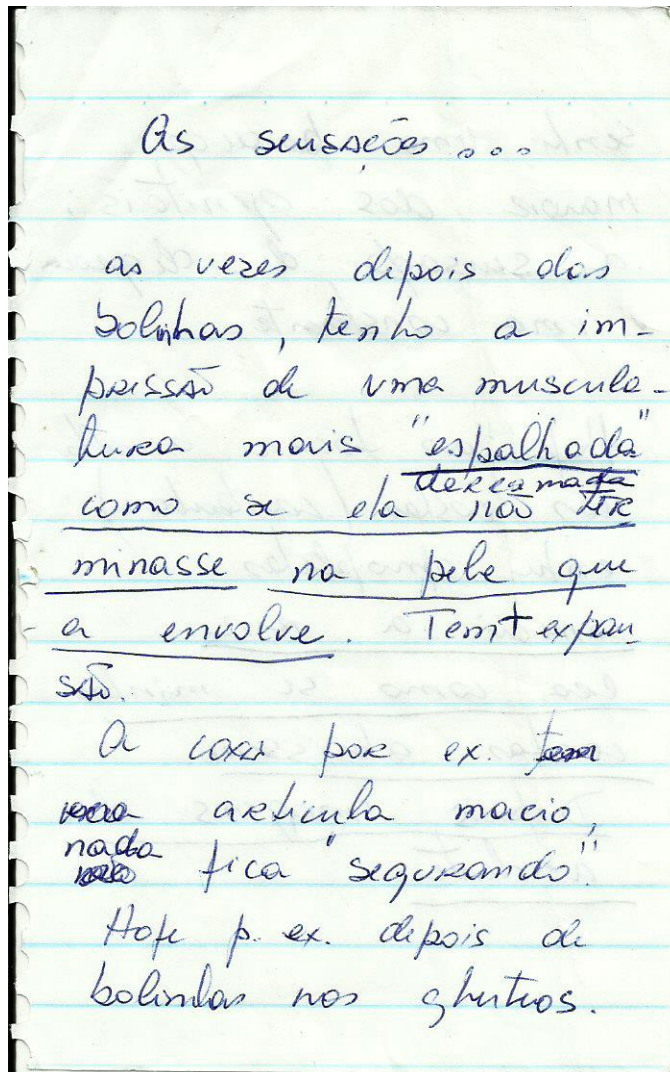 As sensações...
as vezes depois das
bolinhas, tenho a im-
pressão de uma muscula-
tura mais "espalhada"
derramada
como se ela não ter
minasse na pele que
a envolve. Tem + expan
são.
A coxa por ex.
articula macio,
nada fica "segurando".
Hoje p. ex. depois de
bolinhas nos glúteos.